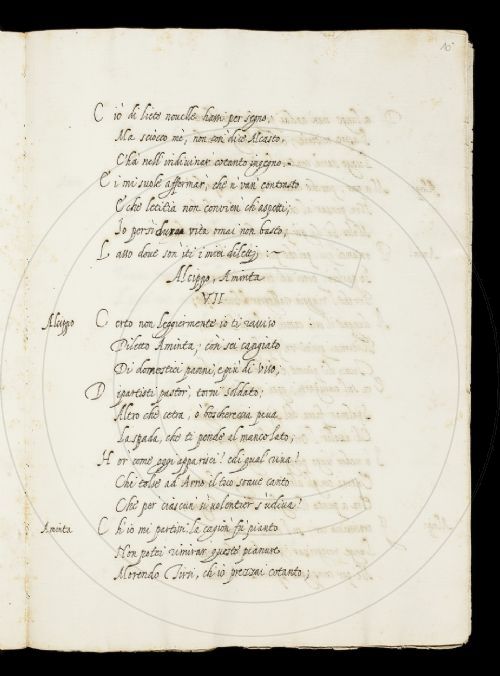 10
Ciò di liete nouelle hassi per segno;
Ma sciocco mè, non così dice Alcasto,
C'hà nell'indiuinar cotanto ingegno.
Ei mi suole affermar, che è van contrasto
E che letitia non conuien ch'aspetti;
Io persi vita omai non basto;
Lasso doue son iti i miei diletti;
Alcippo, Aminta
VII
Alcippo Certo non leggiermente io ti rauuiso
Diletto Aminta; così sei cangiato
Di domestici panni, e più di viso;
Dipartisti pastor, torni soldato;
Altro che cetra, ò boschereccia piua
La spada, che ti pende al manco lato;
Hor come oggi apparisci? e di qual riua?
Chi tolse ad Arno il tuo soaue canto
Che per ciascun sì volentier s'udiua?
Aminta Ch'io mi partissi, la cagion fù pianto
Non potei rimirar queste pianure
Morendo Tirsi, ch'io prezzai cotanto;